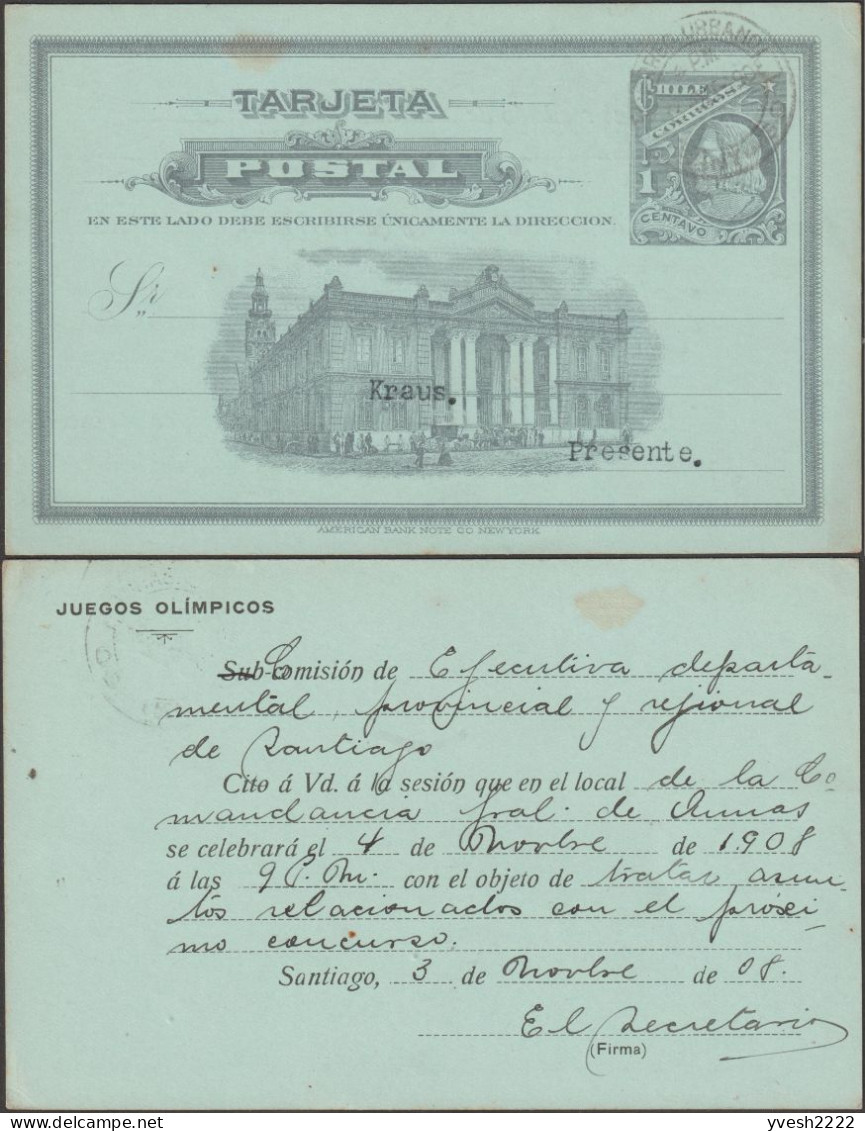 TARJETA
POSTAL
EN ESTE LADO DEBE ESCRIBIRSE ÚNICAMENTE LA DIRECCION.
CHILE
CORREOS
1
CENTAVO
URBANO
Sr
Kraus.
Presente.
AMERICAN BANK NOTE CO NEW YORK
JUEGOS OLÍMPICOS
Sub-Comisión de Ejecutiva departa-
mental, provincial y rejional
de Santiago
Cito á Vd. á la sesión que en el local de la Co
mandancia Gral. de Armas
se celebrará el 4 de Novbre de 1908
á las 9 P.M. con el objeto de tratar asun-
tos relacionados con el próxi
mo concurso.
Santiago, 3 de Novbre de 08.
El Secretario
(Firma)
yvesh2222